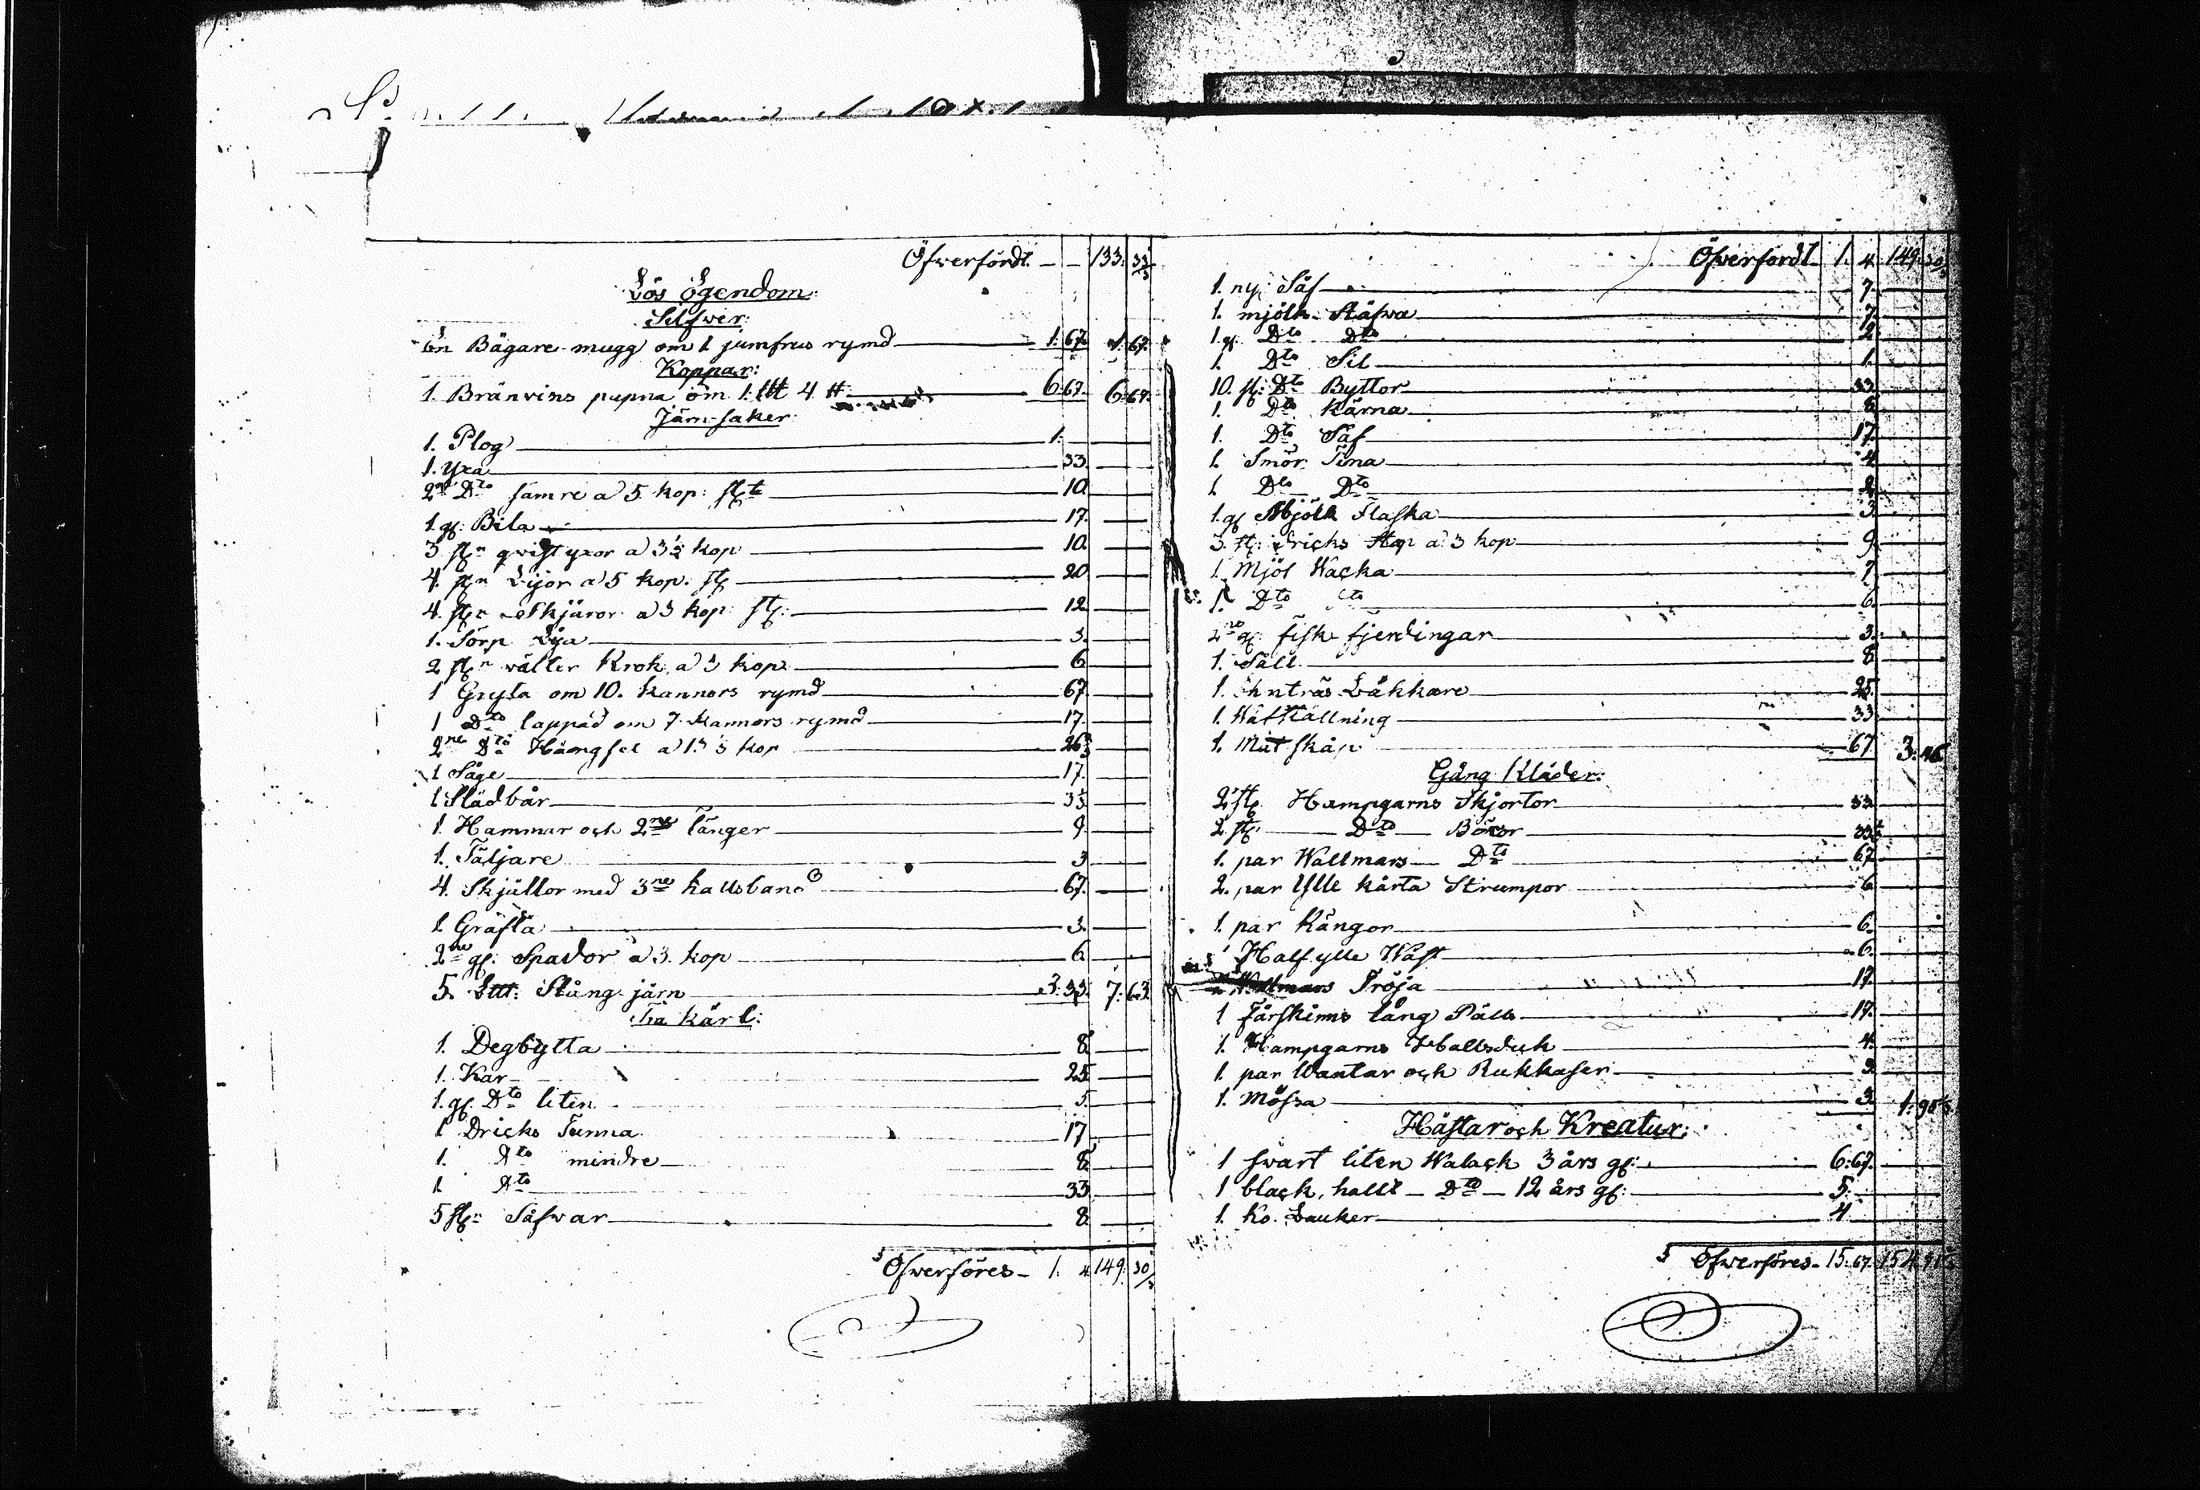 Öfwerfördt — — 133. 33 1/3
Lös Egendom:
Silfwer:
En Bägare mugg om 1 jumfrus rymd 1. 67. 1. 67.
Koppar:
1. Bränvins pepna om 1. Ltt 4 tt: 6. 67. 6. 67.
Järn saker
1. Plog 1.
1. yxa 33.
2ne Dto sämre a 5 kop: st 10.
1. gl: Bila 17.
3 stn qvist yxor a 3 1/3 kop 10.
4. stn Lijor a 5 kop. st 20
4. stn Skjäror a 3 kop st: 12
1. Törp Lija 3.
2 stn välter Krok a 3 kop 6
1 Gryta om 10. kannors rymd 67.
1 Dto lappad om 7. kannors rymd 17.
2ne Dto Hängsel a 13 1/3 kop 26 2/3
1 Såge 17.
1 Städbår 33.
1. Hammar och 2ne Tänger 9.
1. Täljare 3
4. Skjällor med 3ne hallsband 67.
1. Gräfta 3.
2ne gl: Spador a 3. kop 6
5. Ltt: Stång järn 3. 33. 7. 63.
Trä kärl:
1. Degbytta 8.
1. Kar 25
1. gl Dto liten 5.
1 Dricks Tunna 17
1. Dto mindre 8.
1 Dto 33
5 stn Såfwar 8
Öfwerföres — 1. 4. 149. 30 1/3
Öfwerfördt 1. 4. 149. 30 1/3
1. ny Såf 7.
1. mjölk Stäfwa 7.
1. gl Dto Dto 2.
1. Dto Sil 1.
10. st: Dto Byttor 33
1. Dto Kärna 8
1. Dto Såf 17.
1. Smör Tina 4
1. Dto Dto 2
1. gl Mjölk Flaska 3.
3. st: Dricks Stop a 3 kop 9.
1. Mjöl Wacka 7
1. Dto Dto 6.
2ne gl: fisk fjerdingar 3.
1. Såll 8
1. Låkkare 25
1. Wäfställning 33
1. Mat skåp 67 3. 46
Gång Kläder:
2 st Hampgarns Skjortor 33
2 st: Dto Böxor 33
1. par Wallmars Dto 67
2. par Ylle kårta Strumpor 6
1. par Kängor 6.
1 Half ylle Wäst 6.
Wallmars Tröja 17.
1 Fårskinns lång Päls 17.
1. Hampgarns Hallsduk 4.
1. par Wantar och Rukkaser 3.
1. Mössa 3. 1. 95
Hästar och Kreatur:
1 swart liten Walack 3 års gl: 6. 67.
1 black, hallt — Dto — 12 års gl: 5.
1. Ko. Lauker 4
Öfwerföres — 15. 67. 154. 91